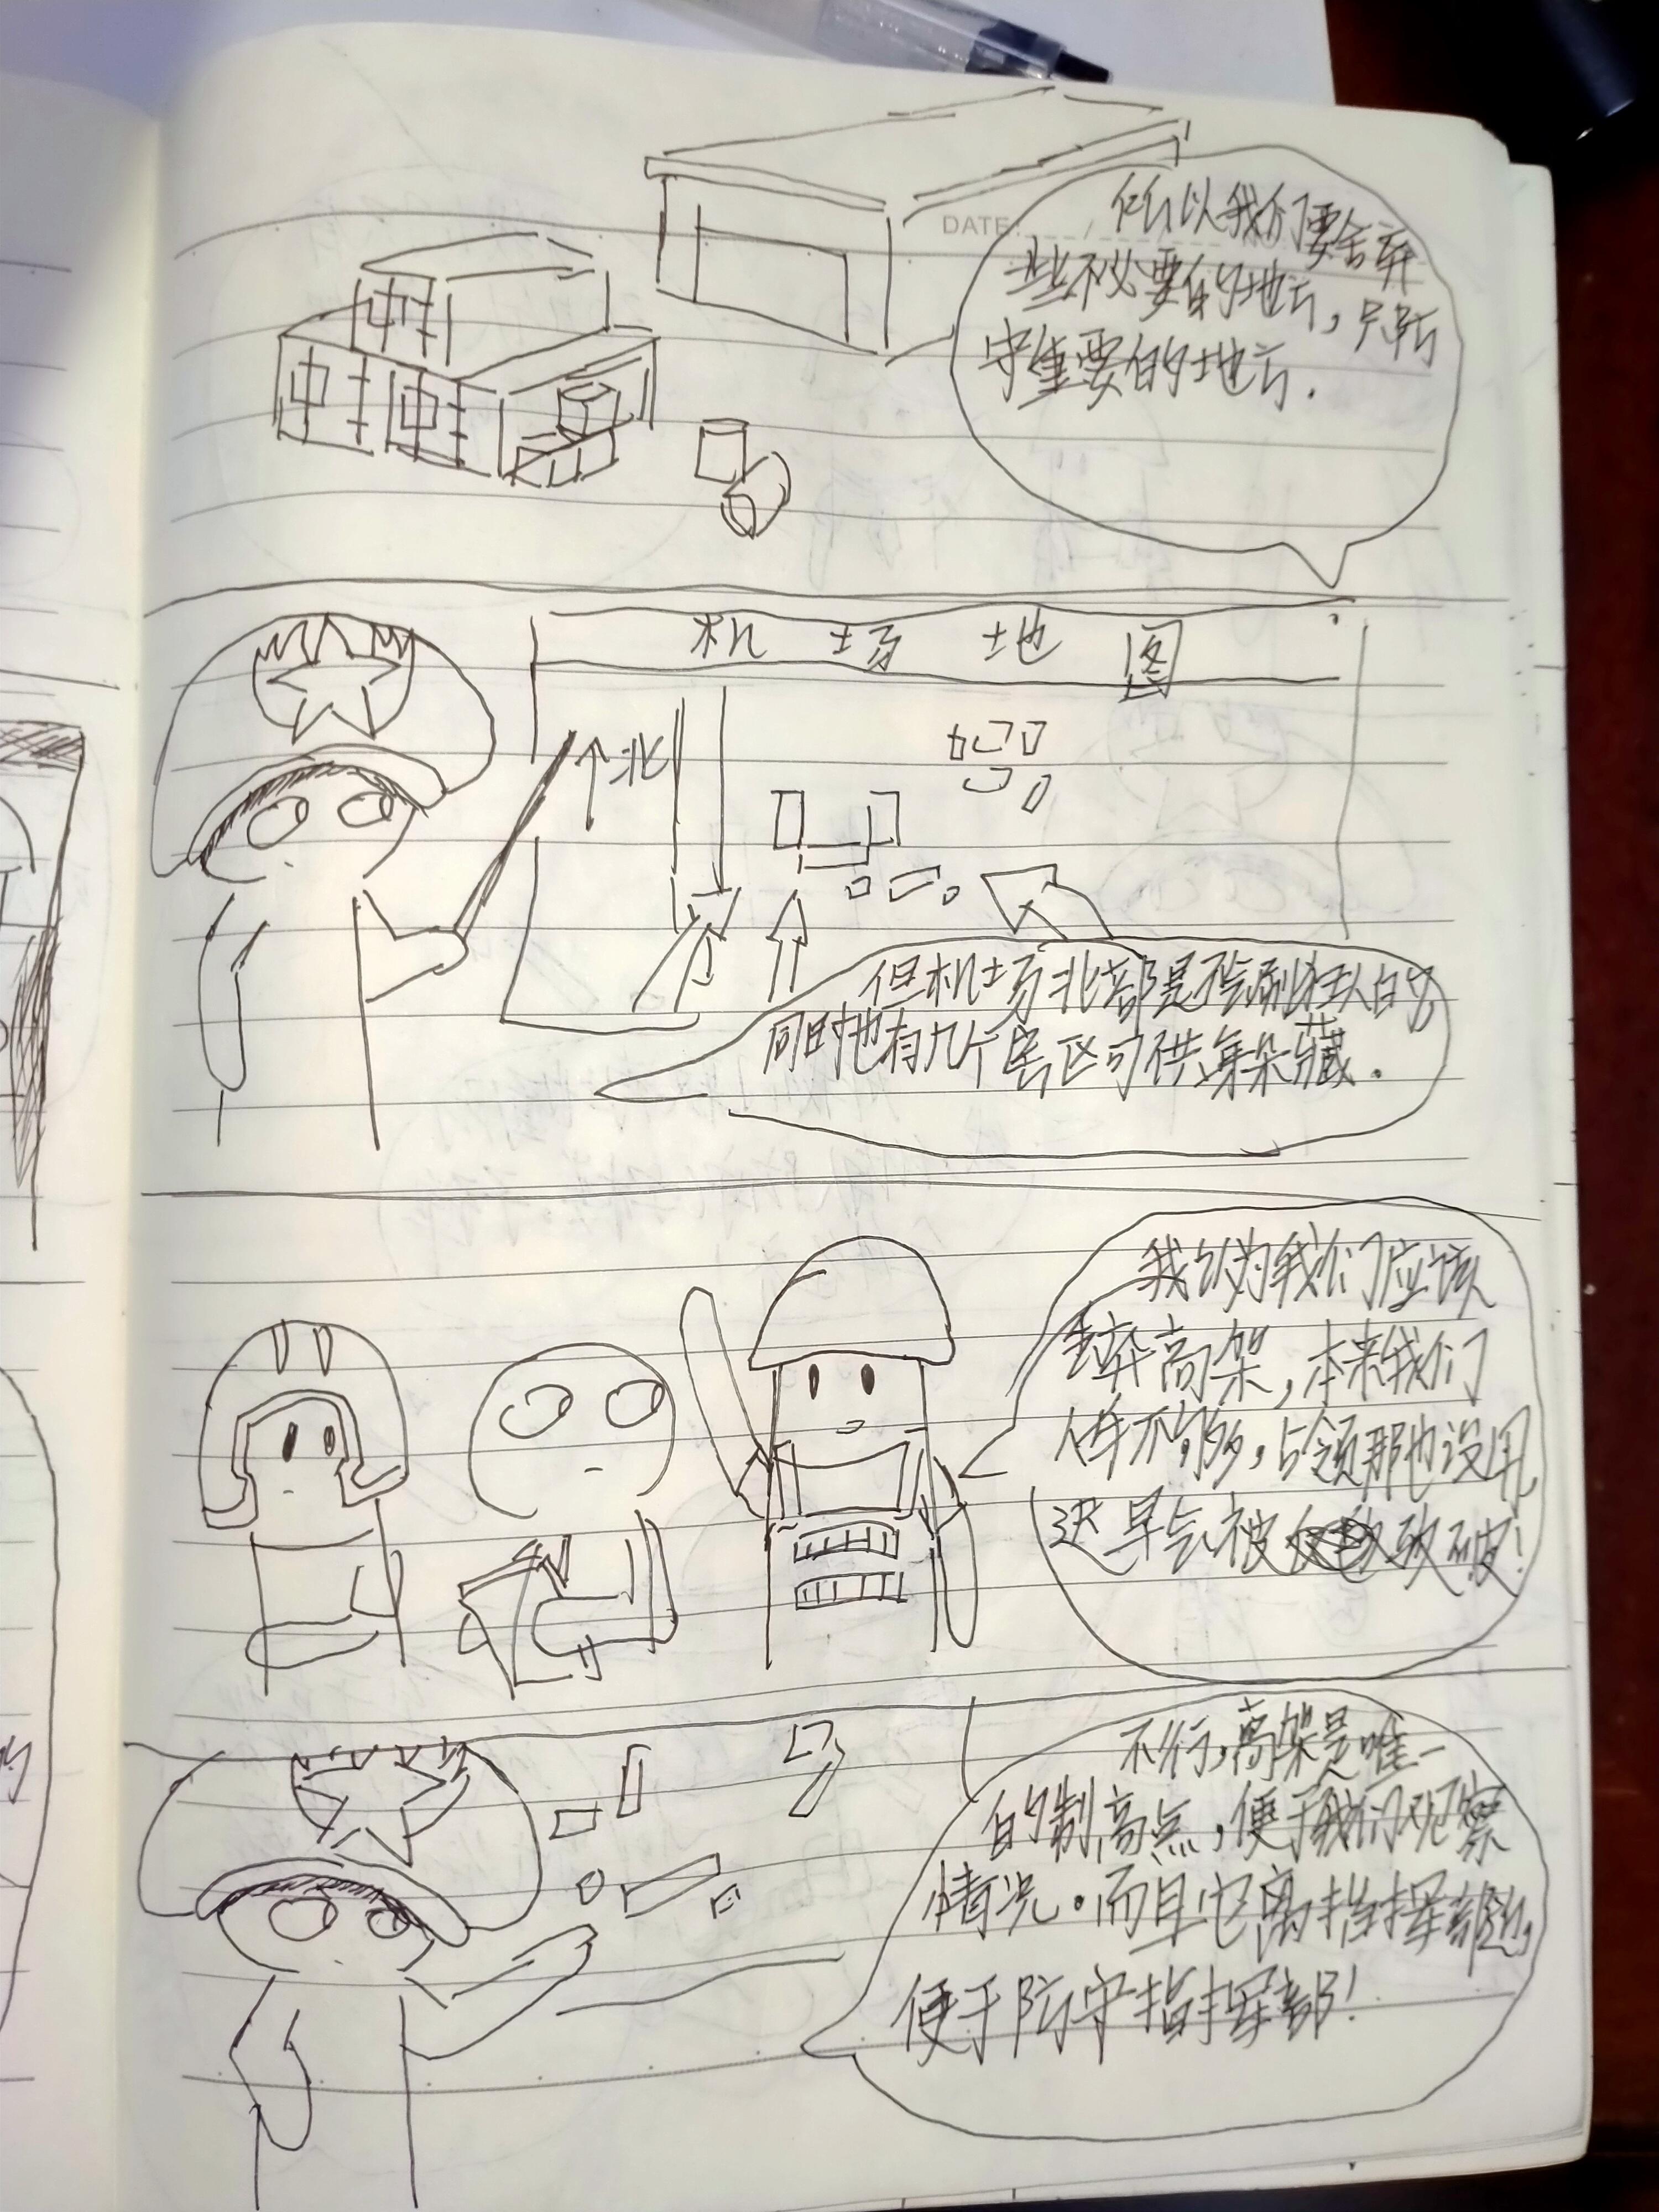 DATE:
所以我们要舍弃
些不必要的地方，只防
守重要的地方.
机场地图
北
但机场北部是不会刷狂人的
同时也有几个房区可供躲藏.
我认为我们应该
舍弃高架，本来我们
人手不够多，占领那也没用，
迟早会被攻破！
不行，高架是唯一
的制高点，便于我们观察
情况。而且它离指挥部近，
便于防守指挥部！